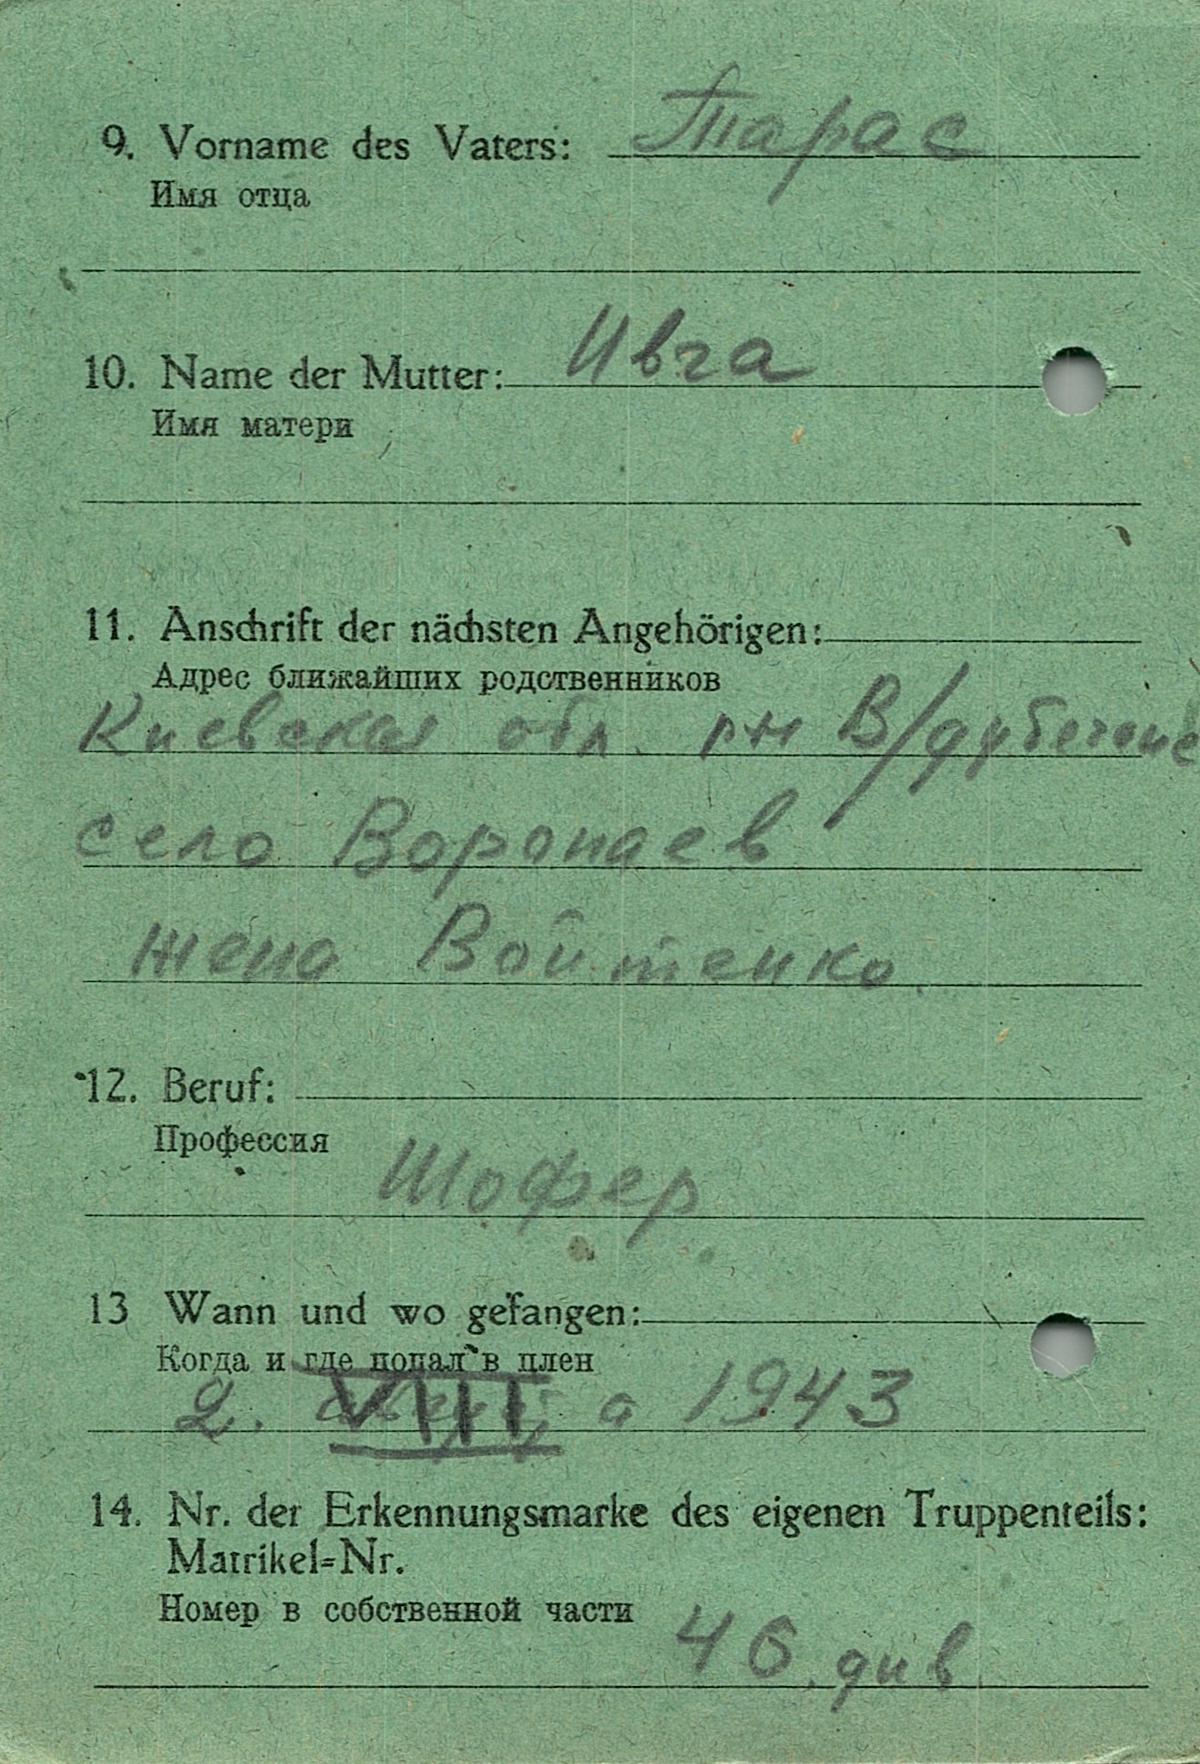 9. Vorname des Vaters: Тарас
Имя отца
10. Name der Mutter: Ивга
Имя матери
11. Anschrift der nächsten Angehörigen:
Адрес ближайших родственников
Киевская обл. рн В/дубечане
село Воропаев
жена Войтенко
12. Beruf:
Профессия
Шофер
13 Wann und wo gefangen:
Когда и где попал в плен
2. VIII а 1943
14. Nr. der Erkennungsmarke des eigenen Truppenteils:
Matrikel=Nr.
Номер в собственной части
46 див